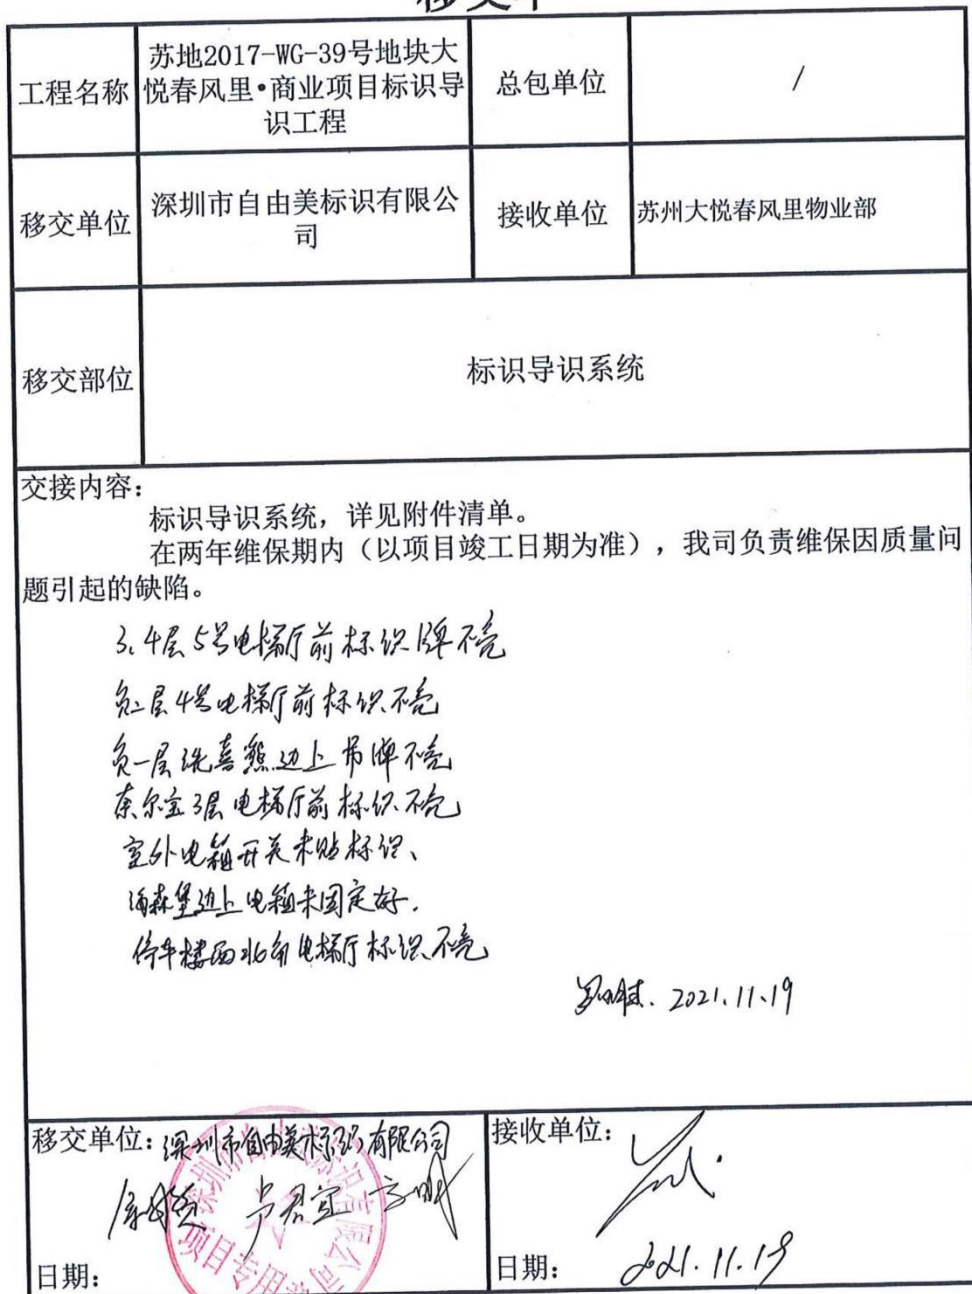 移交单
工程名称
苏地2017-WG-39号地块大
悦春风里•商业项目标识导
识工程
总包单位
/
移交单位
深圳市自由美标识有限公
司
接收单位
苏州大悦春风里物业部
移交部位
标识导识系统
交接内容：
标识导识系统，详见附件清单。
在两年维保期内（以项目竣工日期为准），我司负责维保因质量问
题引起的缺陷。
3、4层5号电梯厅前标识牌不亮
负二层4号电梯厅前标识不亮
负一层洗喜熊边上吊牌不亮
奈尔宝3层电梯厅前标识不亮
室外电箱开关未贴标识、
海森堡边上电箱未固定好.
停车楼西北角电梯厅标识不亮
2021.11.19
移交单位：深圳市自由美标识有限公司
卢君宜
日期：
接收单位：
日期：
2021.11.19
深圳市自由美标识有限公司
项目专用章